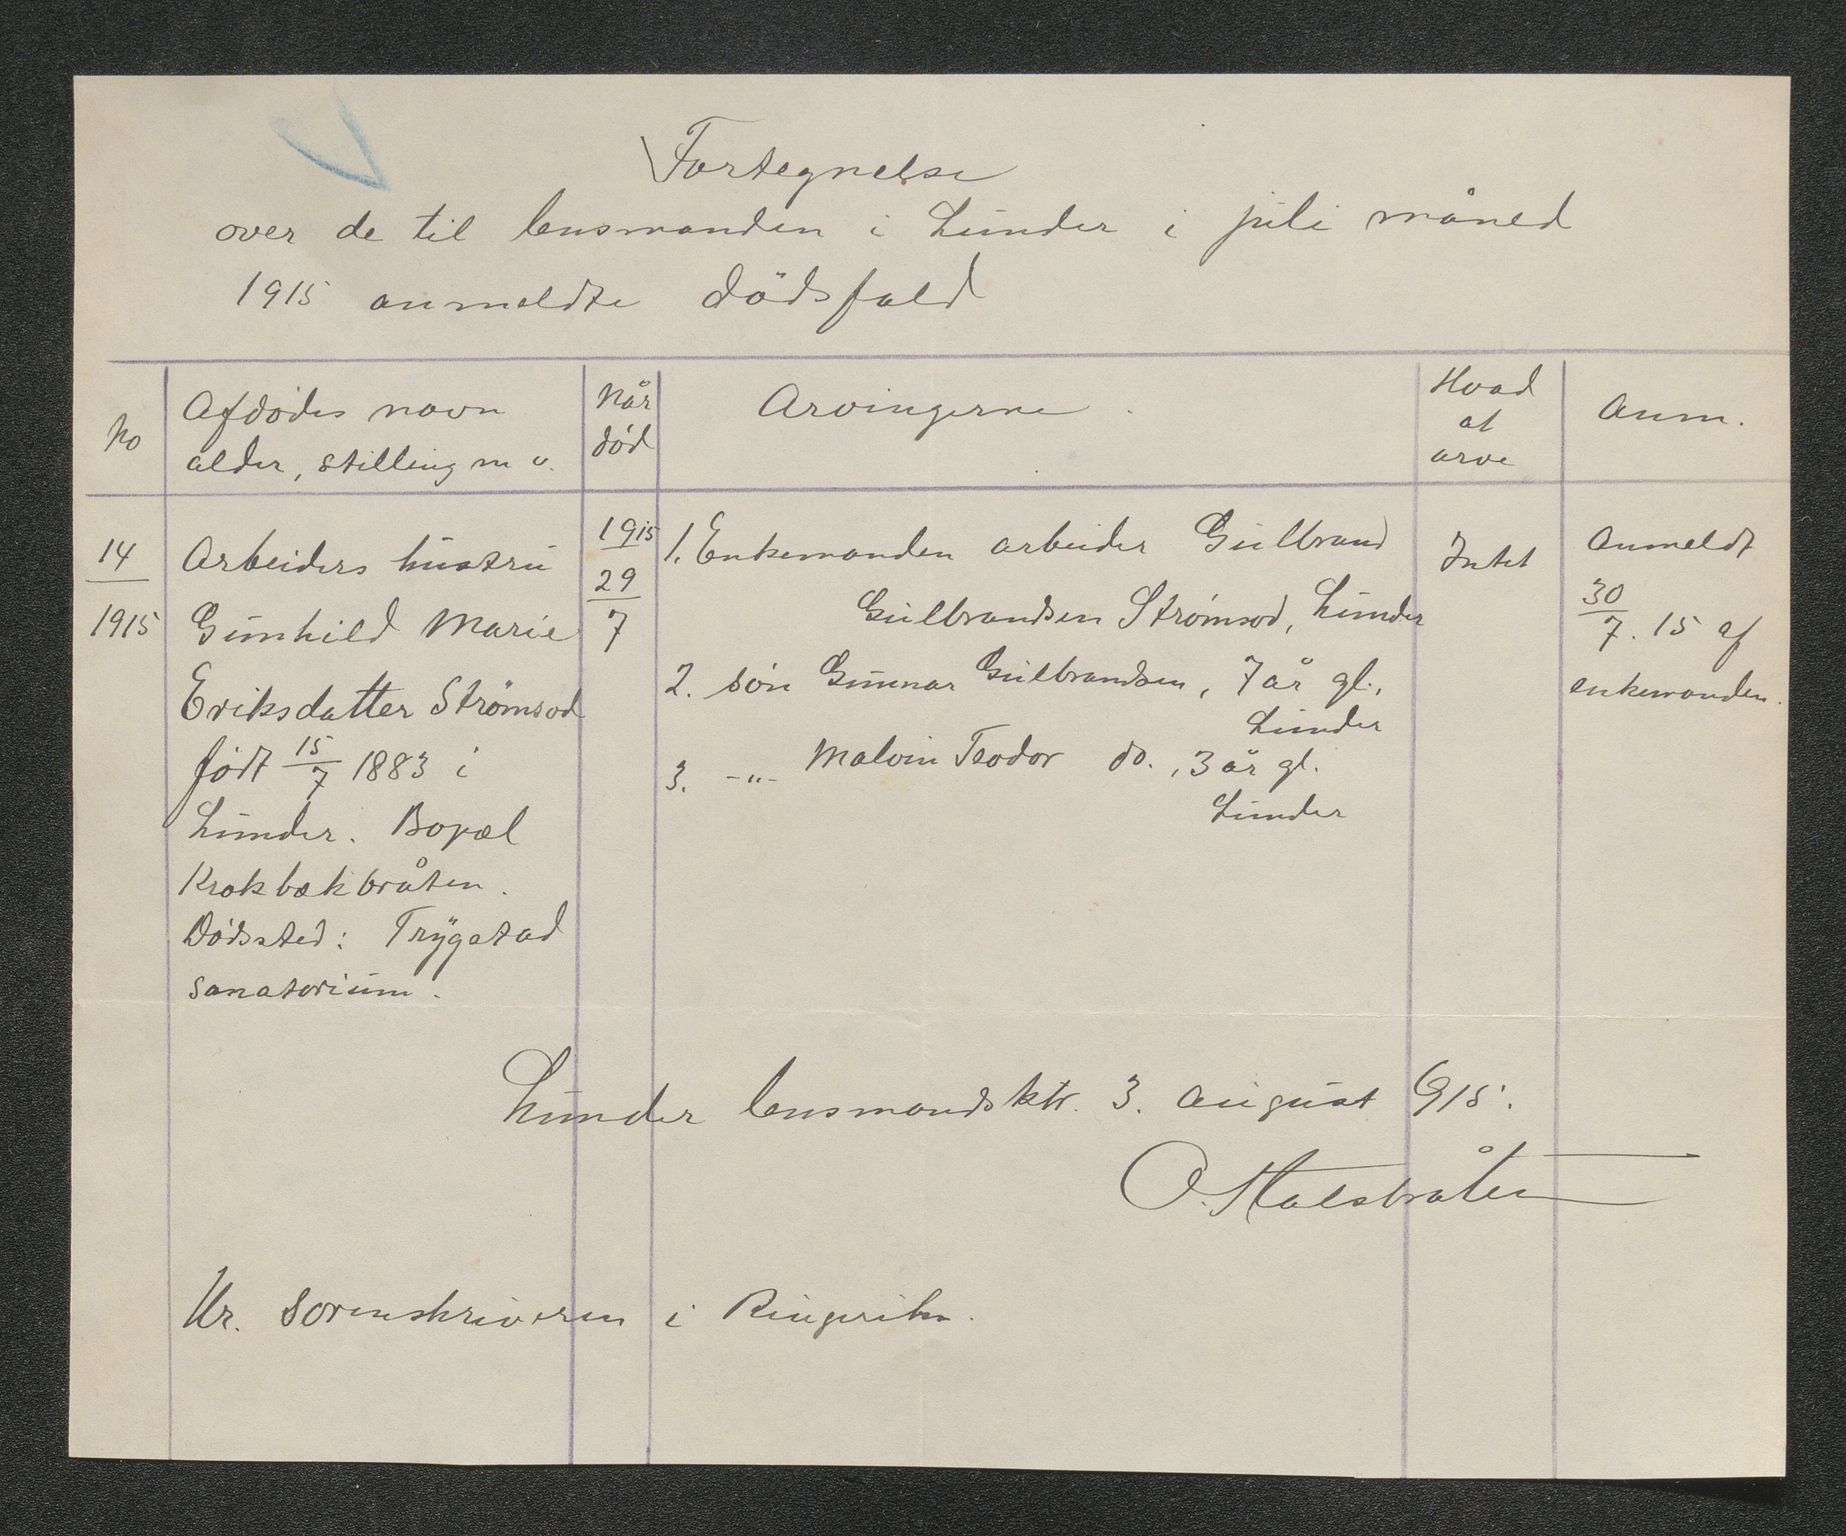 Fortegnelse
over de til lensmanden i Lunder i juli måned
1915 anmeldte dödsfald
No
Afdødes navn
alder, stilling m v.
Når
død
Arvingerne.
Hvad
at
arve
Anm.
14
1915
Arbeiders hustru
Gunhild Marie
Eriksdatter Strömsod
født 15/7 1883 i
Lunder. Bopæl
Krokbækbråten.
Dødssted: Trygstad
sanatorium.
1915
29
7
1. Enkemanden arbeider Gulbrand
Gulbrandsen Strømsod, Lunder
2. søn Gunnar Gulbrandsen, 7 år gl.,
Lunder
3. -"- Malvin Teodor do., 3 år gl.
Lunder
Intet
Anmeldt
30/7. 15 af
enkemanden.
Lunder lensmandsktr. 3. august 1915.
O. Halsbråten
Hr. Sorenskriveren i Ringerike.